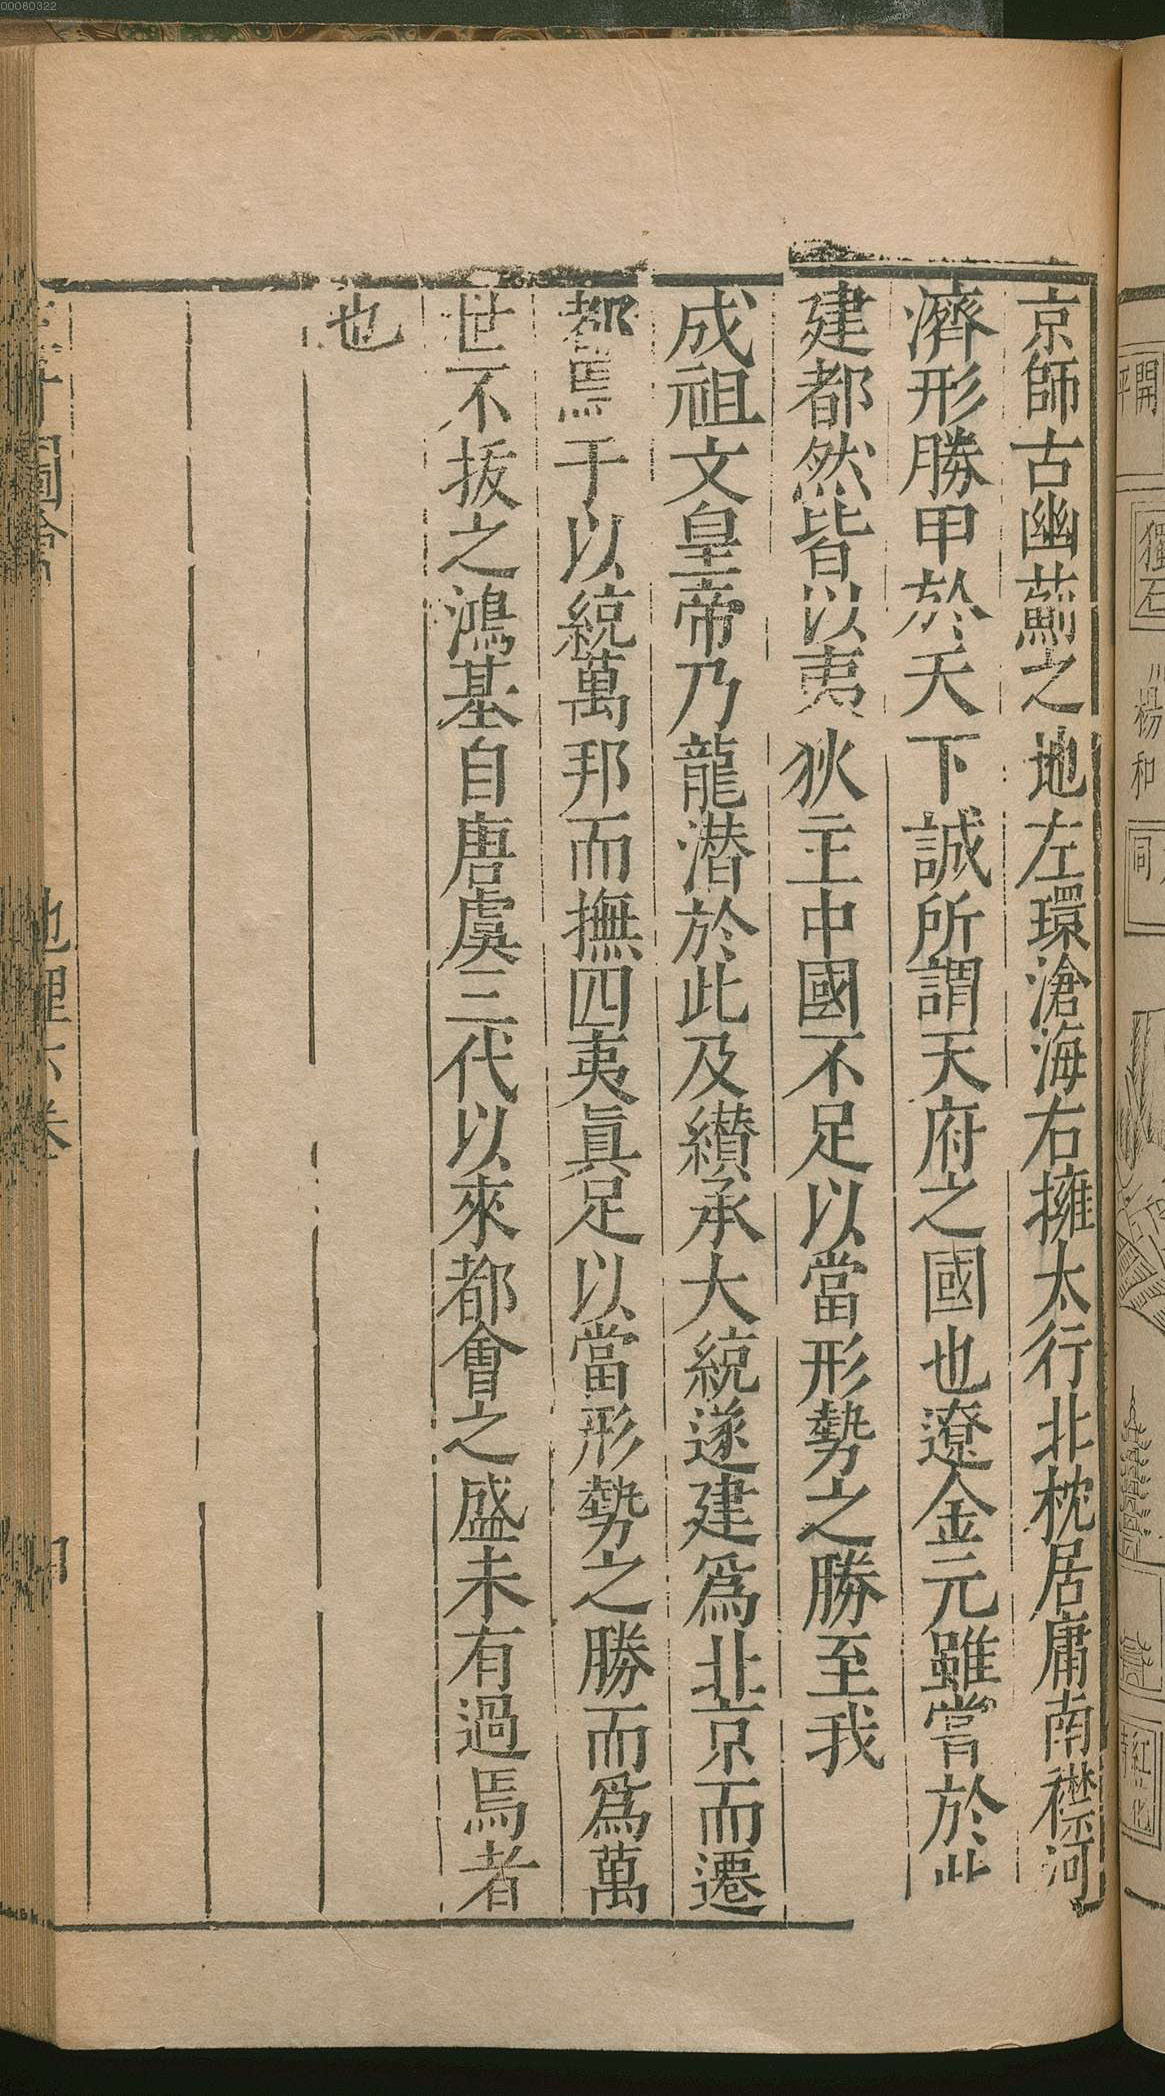 京師古幽薊之地左環滄海右擁太行北枕居庸南襟河
濟形勝甲於天下誠所謂天府之國也遼金元雖嘗於此
建都然皆以夷狄主中國不足以當形勢之勝至我
成祖文皇帝乃龍潛於此及纘承大統遂建爲北京而遷
都焉于以統萬邦而撫四夷眞足以當形勢之勝而爲萬
世不拔之鴻基自唐虞三代以來都會之盛未有過焉者
也
圖會
地理六卷
00060322
開
獨石
楊和